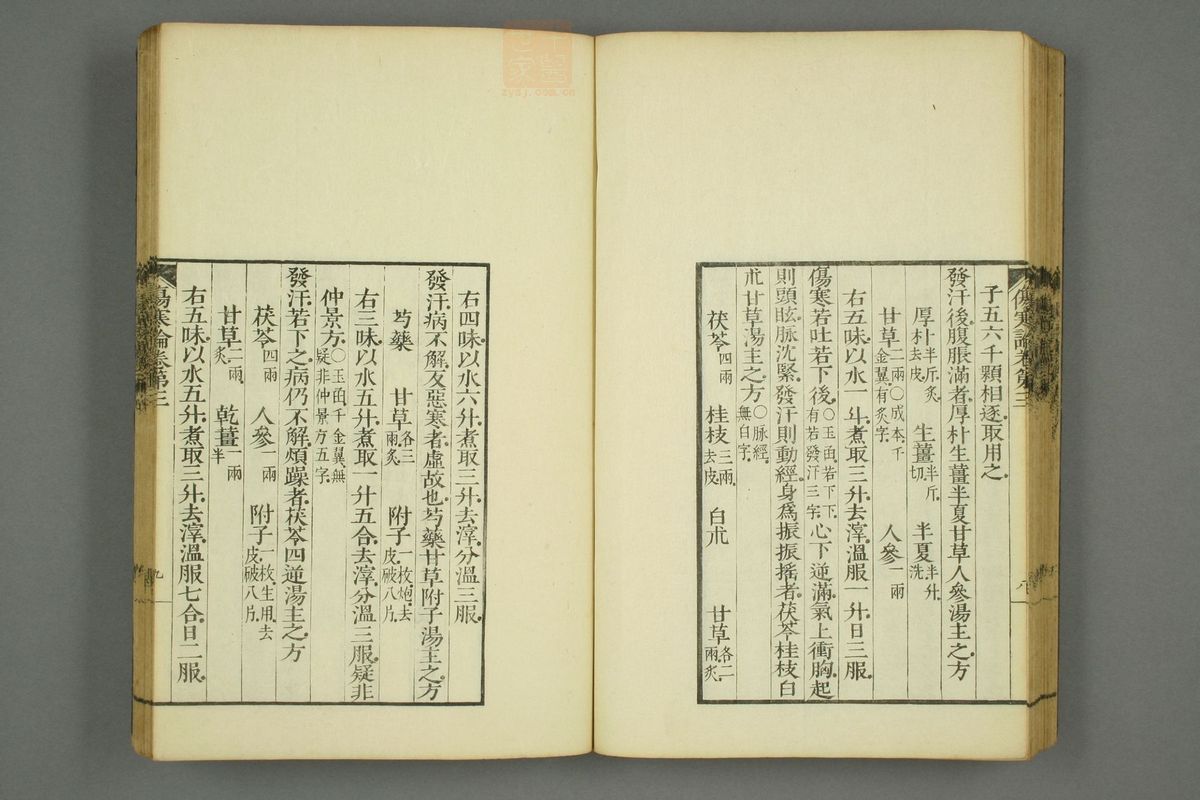 子五六千顆相逐取用之
發汗後腹脹滿者厚朴生薑半夏甘草人參湯主之方
厚朴半斤炙去皮 生薑半斤切 半夏半升洗
甘草二兩〇成本千金翼有炙字 人參一兩
右五味以水一斗煮取三升去滓溫服一升日三服
傷寒若吐若下後〇玉函若下下有若發汗三字心下逆滿氣上衝胸起
則頭眩脈沈緊發汗則動經身爲振振搖者茯苓桂枝白
朮甘草湯主之方〇脈經無白字
茯苓四兩 桂枝三兩去皮 白朮 甘草各二兩炙
傷寒論卷第三
八
右四味以水六升煮取三升去滓分溫三服
發汗病不解反惡寒者虛故也芍藥甘草附子湯主之方
芍藥 甘草各三兩炙 附子一枚炮去皮破八片
右三味以水五升煮取一升五合去滓分溫三服疑非
仲景方〇玉函千金翼無疑非仲景方五字
發汗若下之病仍不解煩躁者茯苓四逆湯主之方
茯苓四兩 人參一兩 附子一枚生用去皮破八片
甘草二兩炙 乾薑一兩半
右五味以水五升煮取三升去滓溫服七合日二服
傷寒論卷第三
九
zysj.com.cn